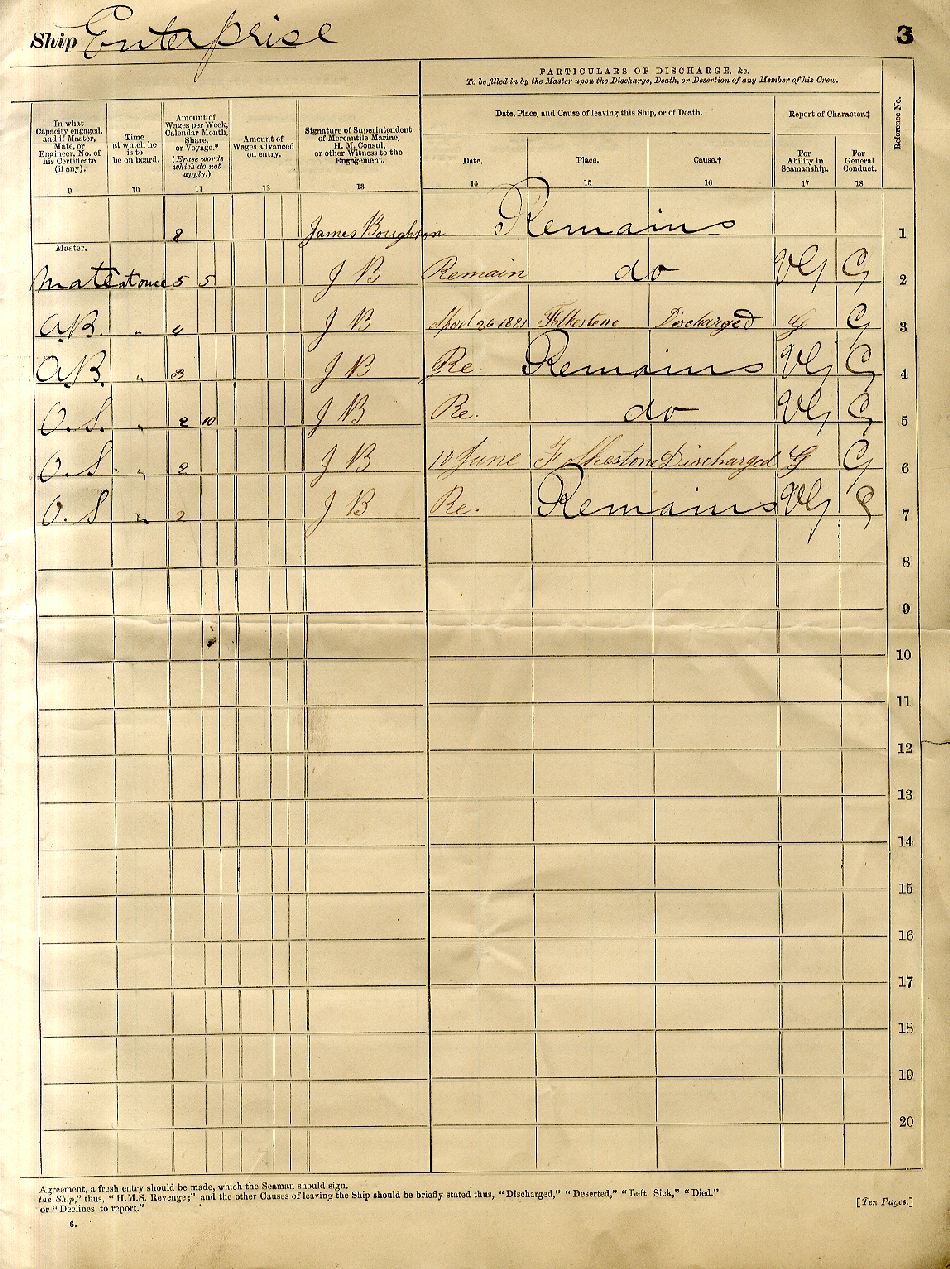 Ship Enterprise 3
PARTICULARS OF DISCHARGE, &c.
To be filled in by the Master upon the Discharge, Death, or Desertion of any Member of his Crew.
In what Capacity engaged, and if Master, Mate, or Engineer, No. of his Certificate (if any).
Time at which he is to be on board.
Amount of Wages per Week, Calendar Month, Share, or Voyage.*
(*Erase words which do not apply.)
Amount of Wages advanced on entry.
Signature of Superintendent of Mercantile Marine, H. M. Consul, or other Witness to the Engagement.
Date, Place, and Cause of leaving this Ship, or of Death.
Report of Character.‡
Date. Place. Cause.†
For Ability in Seamanship.
For General Conduct.
Reference No.
9 10 11 12 13 14 15 16 17 18
Master. 8 James Boughton Remains 1
Mate at once 5 5 J B Remain do VG G 2
A.B. " 4 J B April 26 Folkestone Discharged G G 3
A.B. " 3 J B Re Remains VG G 4
O.S. " 2 10 J B Re. do VG G 5
O.S " 2 J B 10 June Folkestone Discharged G G 6
O.S " 2 J B Re. Remains VG G 7
8
9
10
11
12
13
14
15
16
17
18
19
20
Agreement, a fresh entry should be made, which the Seaman should sign.
the Ship," thus, "H.M.S. Revenge;" and the other Causes of leaving the Ship should be briefly stated thus, "Discharged," "Deserted," "Left Sick," "Died."
or "Declines to report."
[Ten Pages.]
6.